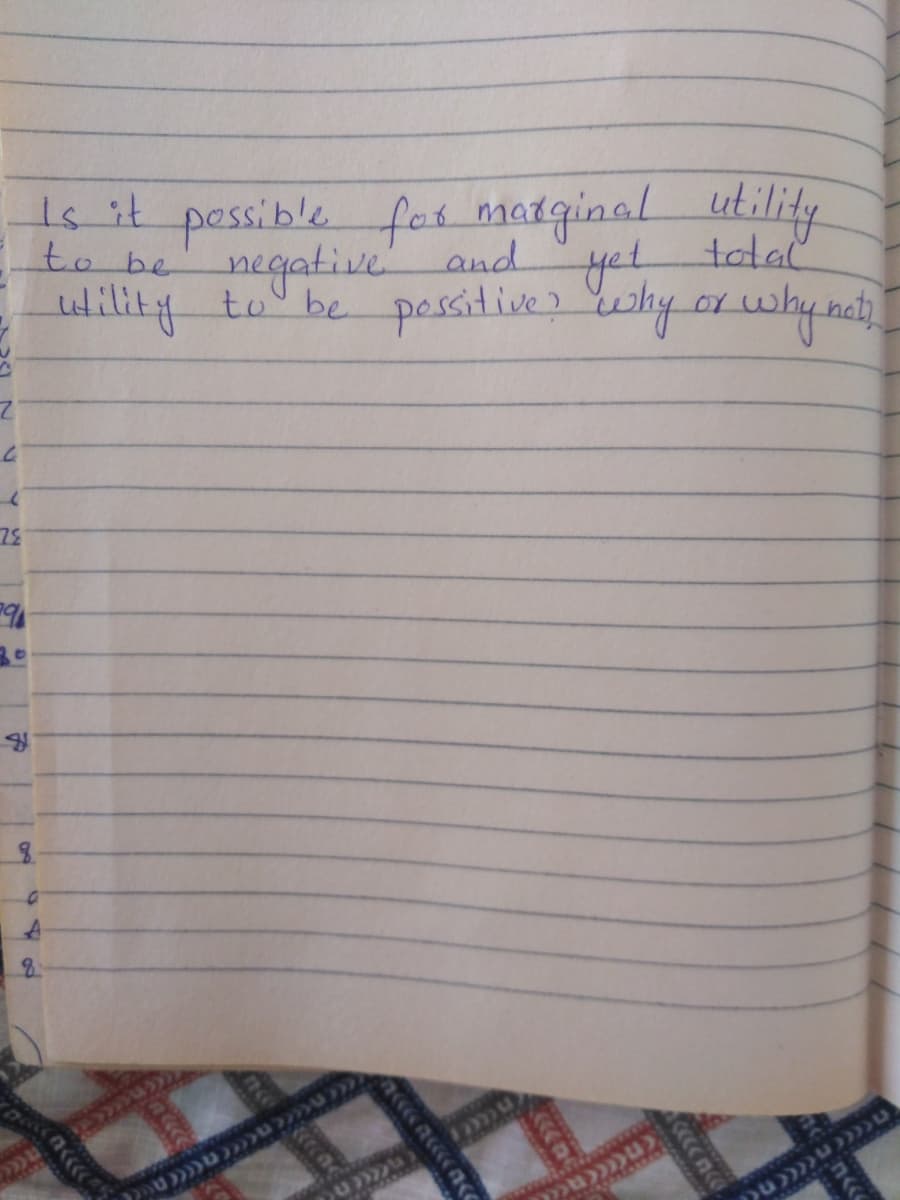 Is it possible for marginal utility
to be negative and yet total
utility to be possitive? why or why not?
75
80
81
8
A
8